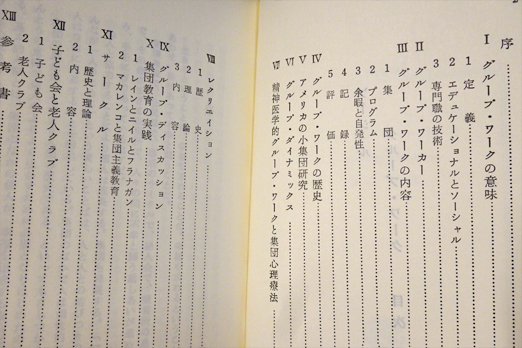 序
Ⅰ グループ・ワークの意味
1 定義
2 エデュケーショナルとソーシャル
3 専門職の技術
Ⅱ グループ・ワーカー
Ⅲ グループ・ワークの内容
1 集団
2 プログラム
3 余暇と自発性
4 記録
5 評価
Ⅳ グループ・ワークの歴史
Ⅴ アメリカの小集団研究
Ⅵ グループ・ダイナミックス
Ⅶ 精神医学的グループ・ワークと集団心理療法
Ⅷ レクリエイション
1 歴史
2 理論
3 内容
Ⅸ グループ・ディスカッション
Ⅹ 集団教育の実践
1 レインとニイルとフラナガン
2 マカレンコと集団主義教育
Ⅺ サークル
1 歴史と理論
2 内容
Ⅻ 子ども会と老人クラブ
1 子ども会
2 老人クラブ
XIII 参考書